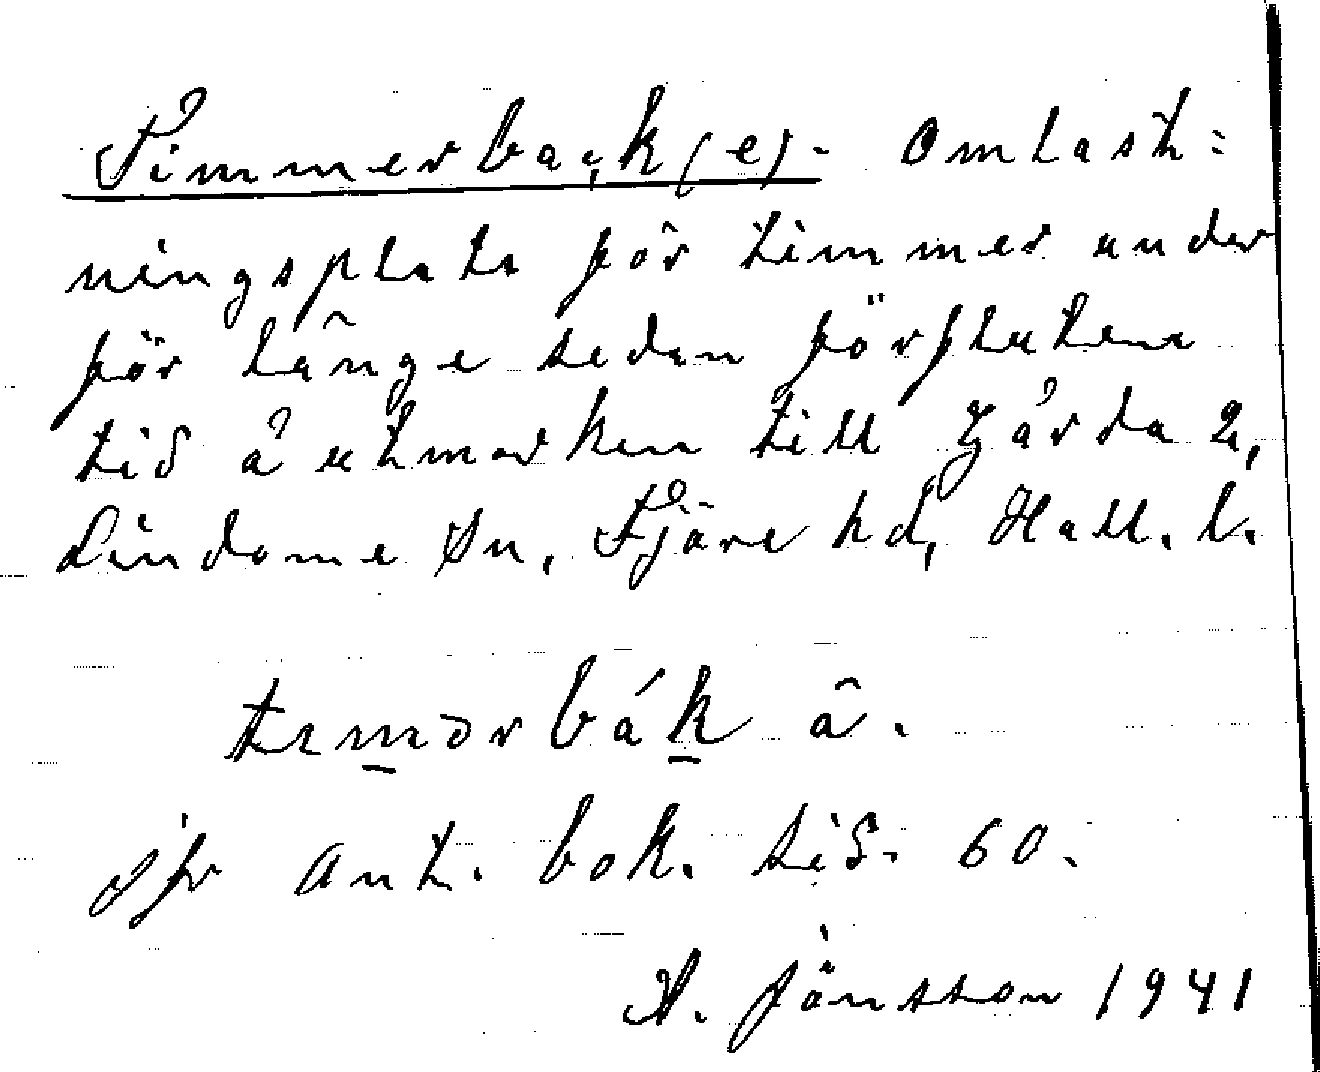 Timmerback(e). Omlast=
ningsplats för timmer under
för länge sedan förfluten
tid å utmarken till Gårda 2,
Lindome sn, Fjäre hd, Hall. l.
bák â.
Jfr Ant. bok. sid. 60.
A. Jönsson 1941